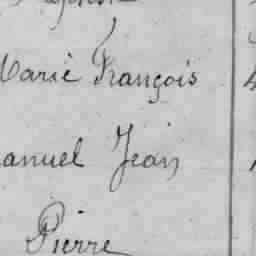 Marie François
anuel Jean
Pierre